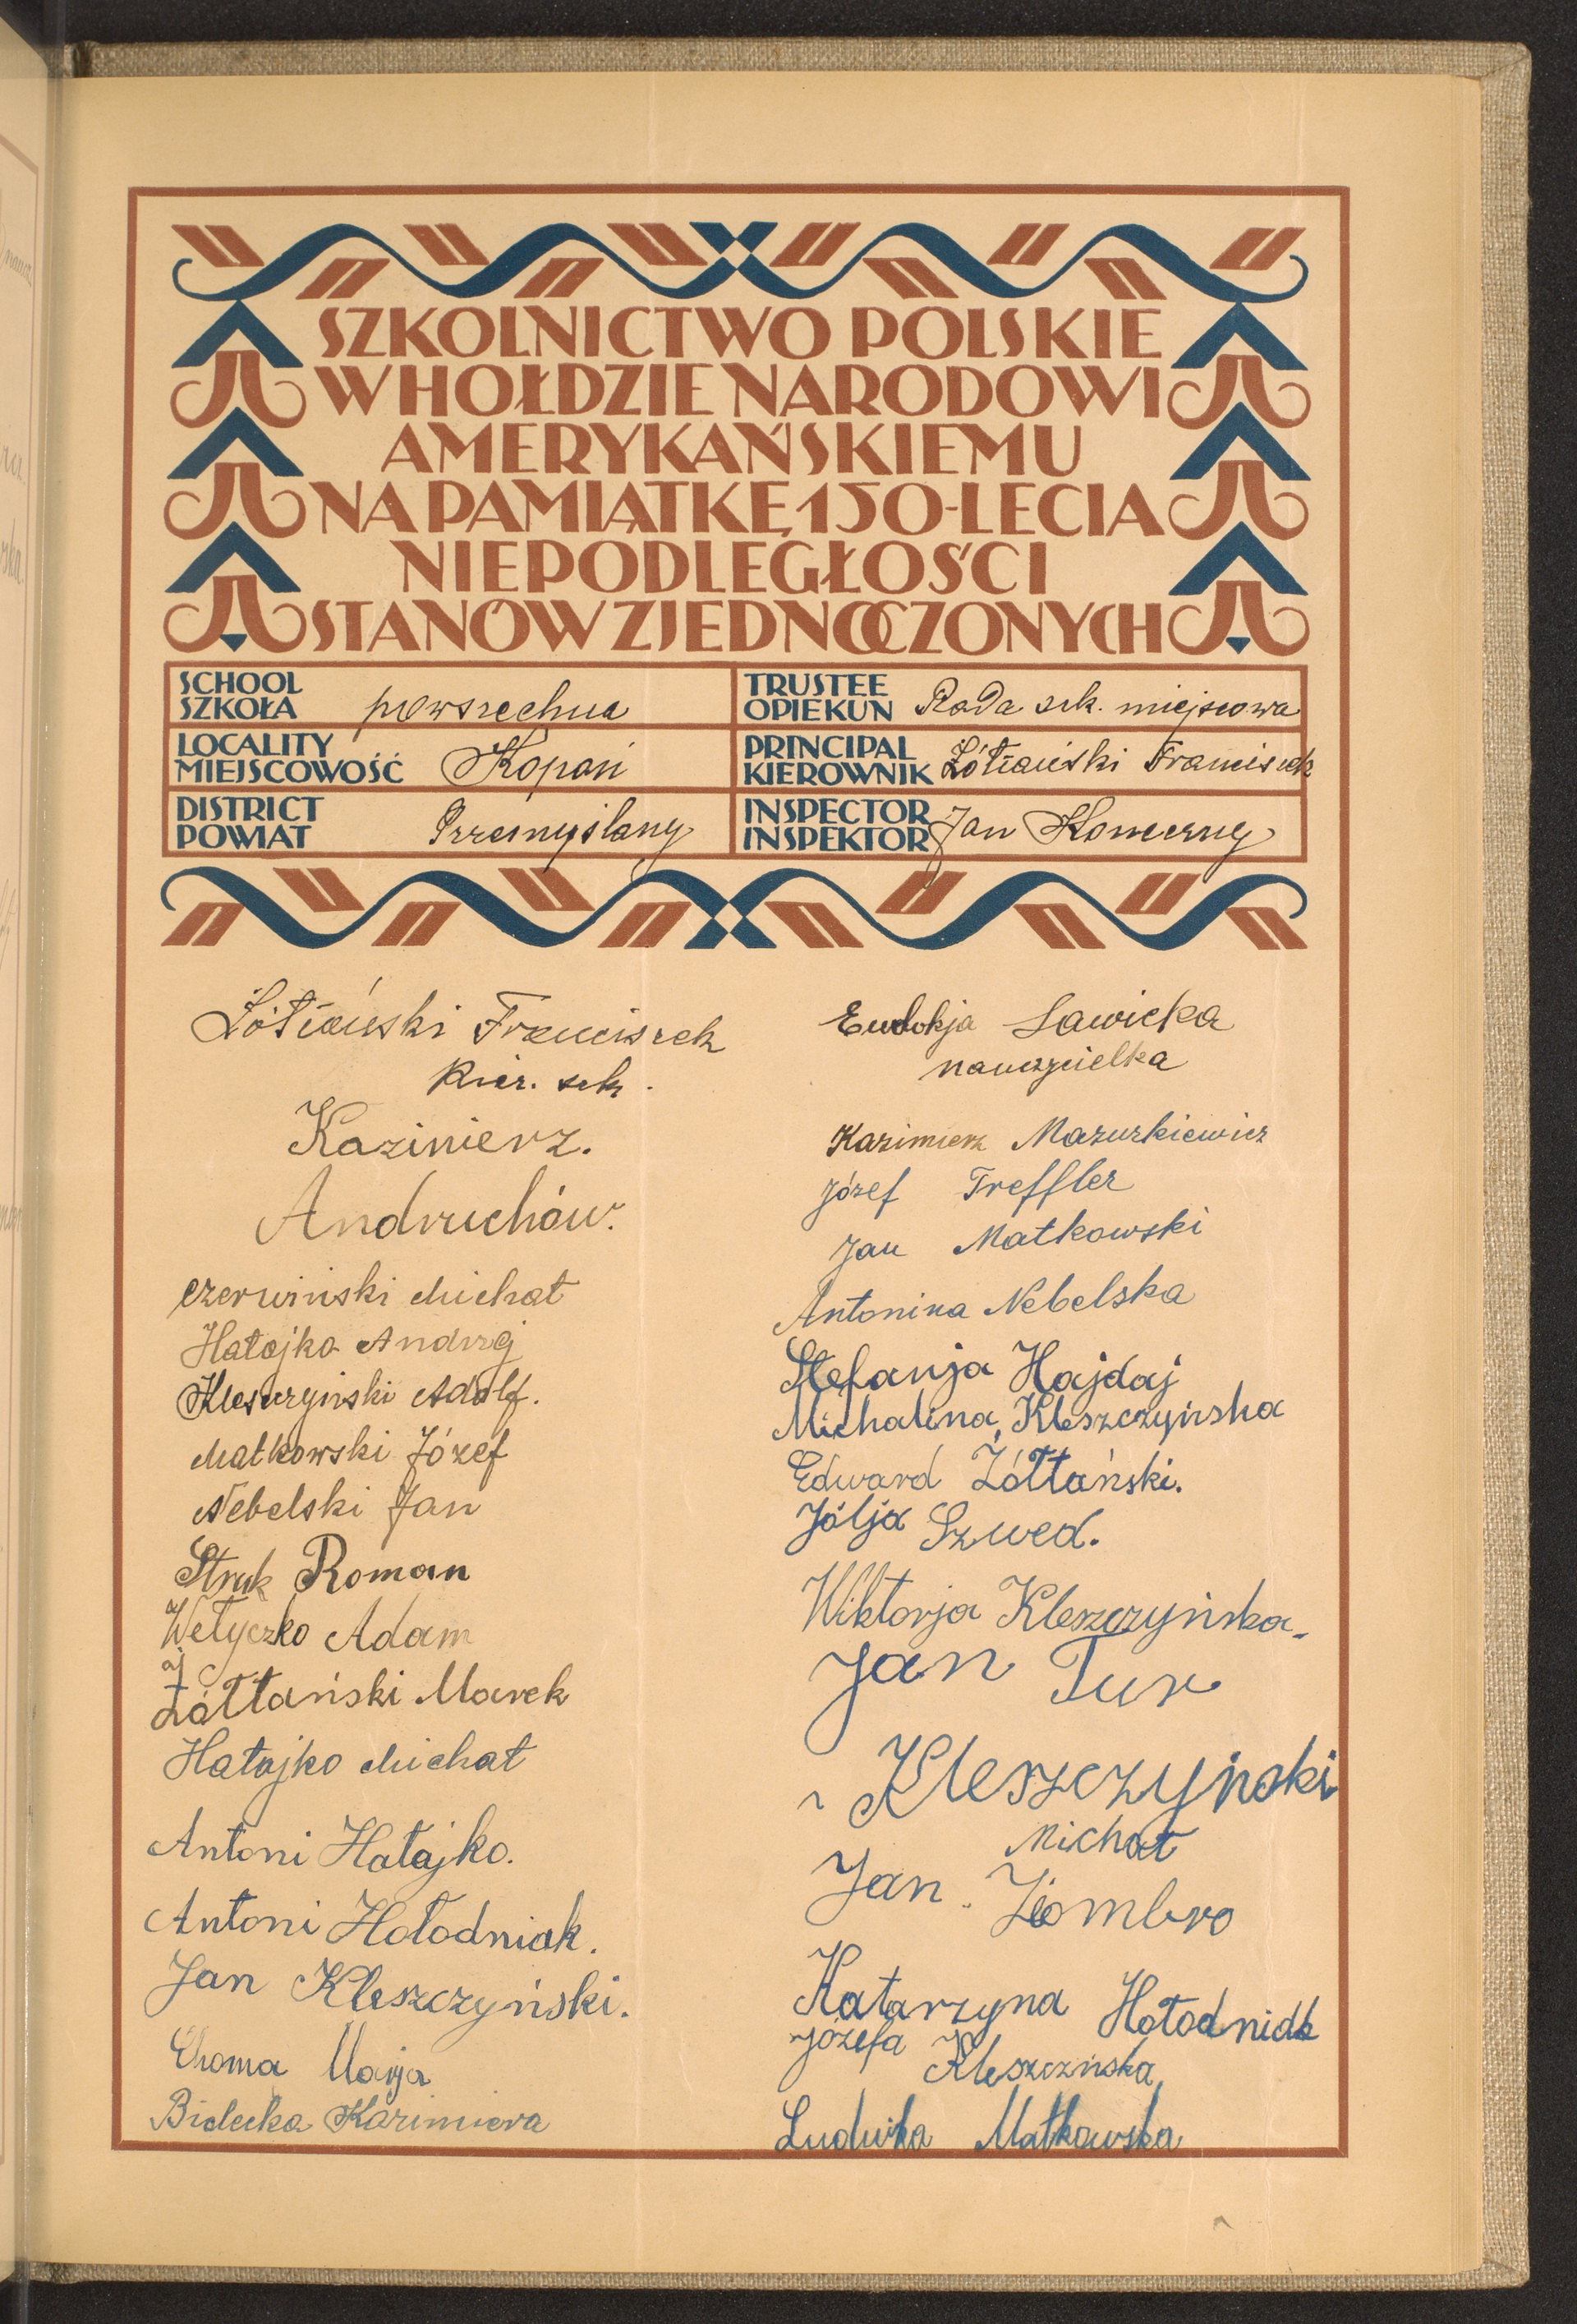 SZKOLNICTWO POLSKIE
W HOŁDZIE NARODOWI
AMERYKAŃSKIEMU
NA PAMIĄTKĘ 150-LECIA
NIEPODLEGŁOŚCI
STANÓW ZJEDNOCZONYCH
SCHOOL
SZKOŁA powszechna
TRUSTEE
OPIEKUN Rada szk. miejscowa
LOCALITY
MIEJSCOWOŚĆ Kopań
PRINCIPAL
KIEROWNIK Żółtański Franciszek
DISTRICT
POWIAT Przemyślany
INSPECTOR
INSPEKTOR Jan
Żółtański Franciszek
Kier. szk.
Kazimierz.
Andruchów.
Czerwiński Michał
Hałajko Andrzej
Kleszczyński Adolf.
Matkowski Józef
Nebelski Jan
Struk Roman
Wełyczko Adam
Żółtański Marek
Hałajko Michał
Antoni Hałajko.
Antoni Hołodniak.
Jan Kleszczyński.
Maryja
Bielecka Kazimiera
Eudokja Sawicka
nauczycielka
Kazimierz Mazurkiewicz
Józef Treffler
Jan Matkowski
Antonina Nebelska
Stefanja Hajdaj
Michalina Kleszczyńska
Edward Żółtański.
Jólja Szwed.
Wiktorja Kleszczyńska
Jan Tur
Kleszczyński
Michał
Jan Ziombro
Katarzyna Hołodniak
Józefa
Kleszczńska
Ludwika Matkowska